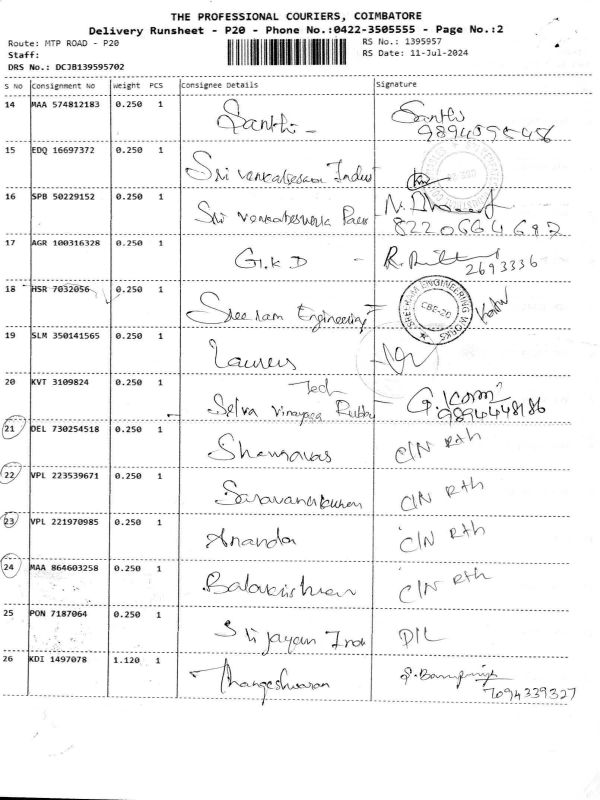 THE PROFESSIONAL COURIERS, COIMBATORE
Delivery Runsheet - P20 - Phone No.:0422-3505555 - Page No.:2
Route: MTP ROAD - P20
RS No.: 1395957
Staff:
RS Date: 11-Jul-2024
DRS No.: DCJB139595702
S No Consignment No weight PCS Consignee Details Signature
14 MAA 574812183 0.250 1 Santhi - Santhi
15 EDQ 16697372 0.250 1 Sri venkateswara Indus
16 SPB 50229152 0.250 1 Sri venkateswara
8220664692
17 AGR 100316328 0.250 1 G.K D - R.
2693336
18 HSR 7032056 0.250 1 Sree ram Engineering SHREERAM ENGINEERING WORKS CBE-20
19 SLM 350141565 0.250 1 Laurus
Tech
20 KVT 3109824 0.250 1 Selva vinayaga Rubber
9894448186
21 DEL 730254518 0.250 1 C/N Rth
22 VPL 223539671 0.250 1 Saravanakumar C/N Rth
23 VPL 221970985 0.250 1 Ananda C/N Rth
24 MAA 864603258 0.250 1 Balakrishnan C/N Rth
25 PON 7187064 0.250 1 Sri jayam D/L
26 KDI 1497078 1.120 1 Thangeshwaran
7094339327